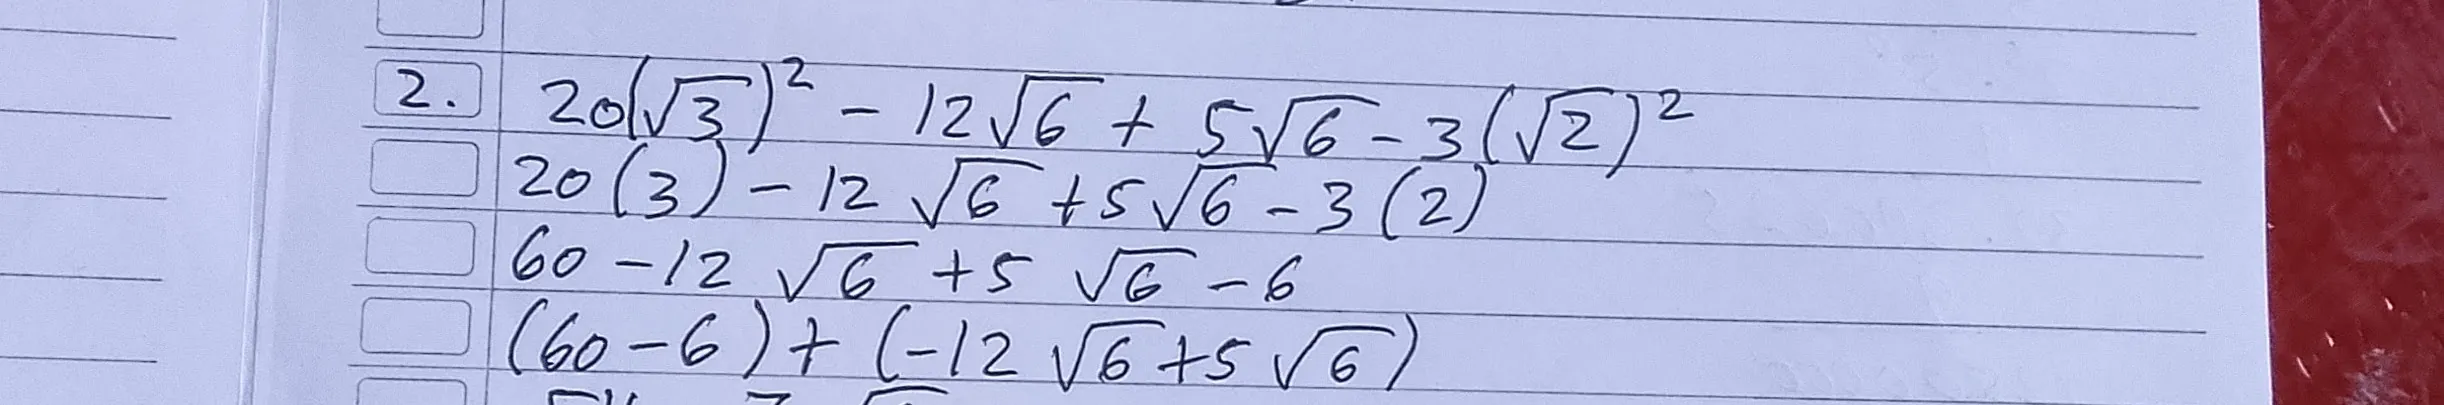 2. 20(√3)² - 12√6 + 5√6 - 3(√2)²
20(3) - 12√6 + 5√6 - 3(2)
60 - 12√6 + 5√6 - 6
(60 - 6) + (-12√6 + 5√6)